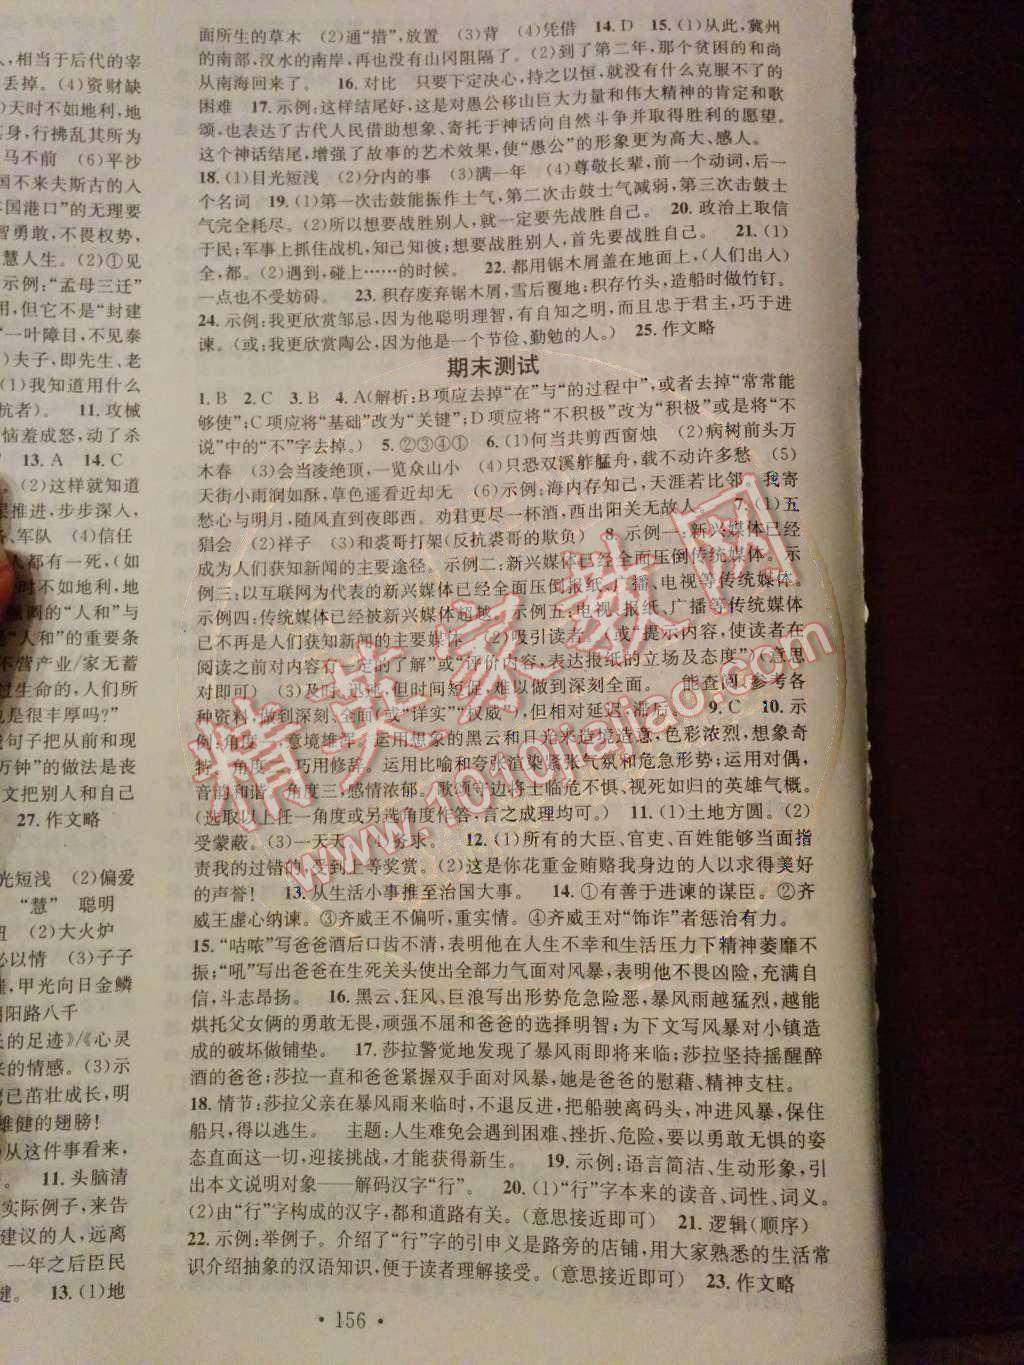 人,相当于后代的宰
丢掉。(4)资财缺
)天时不如地利,地
其身,行拂乱其所为
马不前 (6)平沙
国不来夫斯古的入
国港口”的无理要
智勇敢,不畏权势,
慧人生。(2)①见
示例:“孟母三迁”
用,但它不是“封建
“一叶障目,不见泰
)夫子,即先生、老
(1)我知道用什么
抗者)。 11. 攻械
恼羞成怒,动了杀
13. A 14. C
(2)这样就知道
推进,步步深入,
、军队 (4)信任
人都有一死,(如
时不如地利,地
调的“人和”与
“人和”的重要条
不营产业/家无蓄
过生命的,人们所
也是很丰厚吗?”
句子把从前和现
万钟”的做法是丧
文把别人和自己
27. 作文略
光短浅 (2)偏爱
“慧” 聪明
(2)大火炉
必以情 (3)子子
,甲光向日金鳞
阳路八千
的足迹》/《心灵
来的情感。(3)示
已茁壮成长,明
雄健的翅膀!
从这件事看来,
。 11. 头脑清
实际例子,来告
建议的人,远离
一年之后臣民
健。 13. (1)地
面所生的草木 (2)通“措”,放置 (3)背 (4)凭借 14. D 15. (1)从此,冀州
的南部,汉水的南岸,再也没有山冈阻隔了。(2)到了第二年,那个贫困的和尚
从南海回来了。 16. 对比 只要下定决心,持之以恒,就没有什么克服不了的
困难 17. 示例:这样结尾好,这是对愚公移山巨大力量和伟大精神的肯定和歌
颂,也表达了古代人民借助想象、寄托于神话向自然斗争并取得胜利的愿望。
这个神话结尾,增强了故事的艺术效果,使“愚公”的形象更为高大、感人。
18. (1)目光短浅 (2)分内的事 (3)满一年 (4)尊敬长辈,前一个动词,后一
个名词 19. (1)第一次击鼓能振作士气,第二次击鼓士气减弱,第三次击鼓士
气完全耗尽。(2)所以想要战胜别人,就一定要先战胜自己。 20. 政治上取信
于民;军事上抓住战机,知己知彼;想要战胜别人,首先要战胜自己。 21. (1)
全,都。(2)遇到,碰上……的时候。 22. 都用锯木屑盖在地面上,(人们出入)
一点也不受妨碍。 23. 积存废弃锯木屑,雪后覆地;积存竹头,造船时做竹钉。
24. 示例:我更欣赏邹忌,因为他聪明理智,有自知之明,而且忠于君主,巧于进
谏。(或:我更欣赏陶公,因为他是一个节俭、勤勉的人。) 25. 作文略
期末测试
1. B 2. C 3. B 4. A(解析:B项应去掉“在”与“的过程中”,或者去掉“常常能
够使”;C项应将“基础”改为“关键”;D项应将“不积极”改为“积极”或是将“不
说”中的“不”字去掉。) 5. ②③④① 6. (1)何当共剪西窗烛 (2)病树前头万
木春 (3)会当凌绝顶,一览众山小 (4)只恐双溪舴艋舟,载不动许多愁 (5)
天街小雨润如酥,草色遥看近却无 (6)示例:海内存知己,天涯若比邻。我寄
愁心与明月,随风直到夜郎西。劝君更尽一杯酒,西出阳关无故人。 7. (1)五
猖会 (2)祥子 (3)和裘哥打架(反抗裘哥的欺负) 8. 示例一:新兴媒体已经
成为人们获知新闻的主要途径。示例二:新兴媒体已经全面压倒传统媒体。示
例三:以互联网为代表的新兴媒体已经全面压倒报纸、广播、电视等传统媒体。
示例四:传统媒体已经被新兴媒体超越。示例五:电视、报纸、广播等传统媒体
已不再是人们获知新闻的主要媒体 (2)吸引读者(或“提示内容,使读者在
阅读之前对内容有一定的了解”或“评价内容,表达报纸的立场及态度”)(意思
对即可) (3)及时、迅速,但时间短促,难以做到深刻全面。 能查阅、参考各
种资料,做到深刻、全面(或“详实”“权威”),但相对延迟、滞后。 9. C 10. 示
例:角度一:意境雄浑。运用想象的黑云和日光来造境造意,色彩浓烈,想象奇
特。角度二:巧用修辞。运用比喻和夸张渲染紧张气氛和危急形势;运用对偶,
音韵和谐。角度三:感情浓郁。歌颂了边将士临危不惧、视死如归的英雄气概。
(选取以上任一角度或另选角度作答,言之成理均可。) 11. (1)土地方圆。(2)
受蒙蔽。(3)一天天。(4)务求。 12. (1)所有的大臣、官吏、百姓能够当面指
责我的过错的,受到上等奖赏。(2)这是你花重金贿赂我身边的人以求得美好
的声誉! 13. 从生活小事推至治国大事。 14. ①有善于进谏的谋臣。②齐
威王虚心纳谏。③齐威王不偏听,重实情。④齐威王对“饰诈”者惩治有力。
15. “咕哝”写爸爸酒后口齿不清,表明他在人生不幸和生活压力下精神萎靡不
振;“吼”写出爸爸在生死关头使出全部力气面对风暴,表明他不畏凶险,充满自
信,斗志昂扬。 16. 黑云、狂风、巨浪写出形势危急险恶,暴风雨越猛烈,越能
烘托父女俩的勇敢无畏,顽强不屈和爸爸的选择明智;为下文写风暴对小镇造
成的破坏做铺垫。 17. 莎拉警觉地发现了暴风雨即将来临;莎拉坚持摇醒醉
酒的爸爸;莎拉一直和爸爸紧握双手面对风暴,她是爸爸的慰藉、精神支柱。
18. 情节:莎拉父亲在暴风雨来临时,不退反进,把船驶离码头,冲进风暴,保住
船只,得以逃生。 主题:人生难免会遇到困难、挫折、危险,要以勇敢无惧的姿
态直面这一切,迎接挑战,才能获得新生。 19. 示例:语言简洁、生动形象,引
出本文说明对象——解码汉字“行”。 20. (1)“行”字本来的读音、词性、词义。
(2)由“行”字构成的汉字,都和道路有关。(意思接近即可) 21. 逻辑(顺序)
22. 示例:举例子。介绍了“行”字的引申义是路旁的店铺,用大家熟悉的生活常
识介绍抽象的汉语知识,便于读者理解接受。(意思接近即可) 23. 作文略
· 156 ·
精英家教网
www.1010jiajiao.com